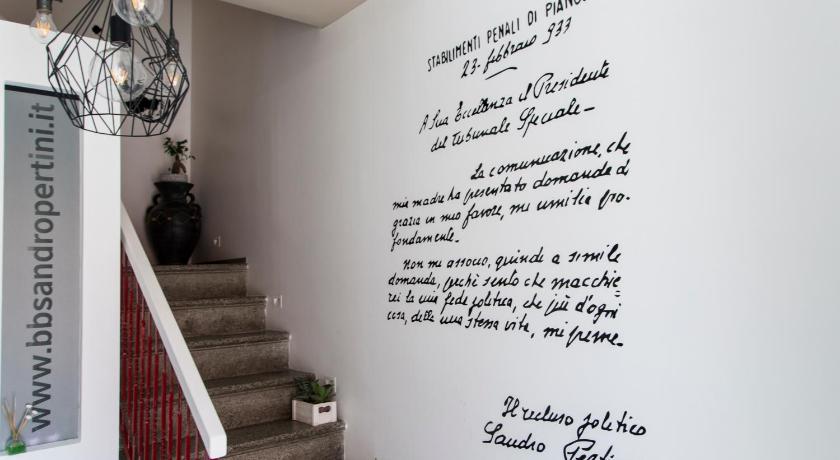 www.bbsandropertini.it
STABILIMENTI PENALI DI PIANO
23 - febbraio 933
A Sua Eccellenza il Presidente
del Tribunale Speciale -
La comunicazione, che
mia madre ha presentato domanda di
grazia in mio favore, mi umilia pro-
fondamente.
Non mi associo, quindi a simile
domanda, perché sento che macchie
rei la mia fede politica, che più d'ogni
cosa, della mia stessa vita, mi preme.
Il recluso politico
Sandro Perti